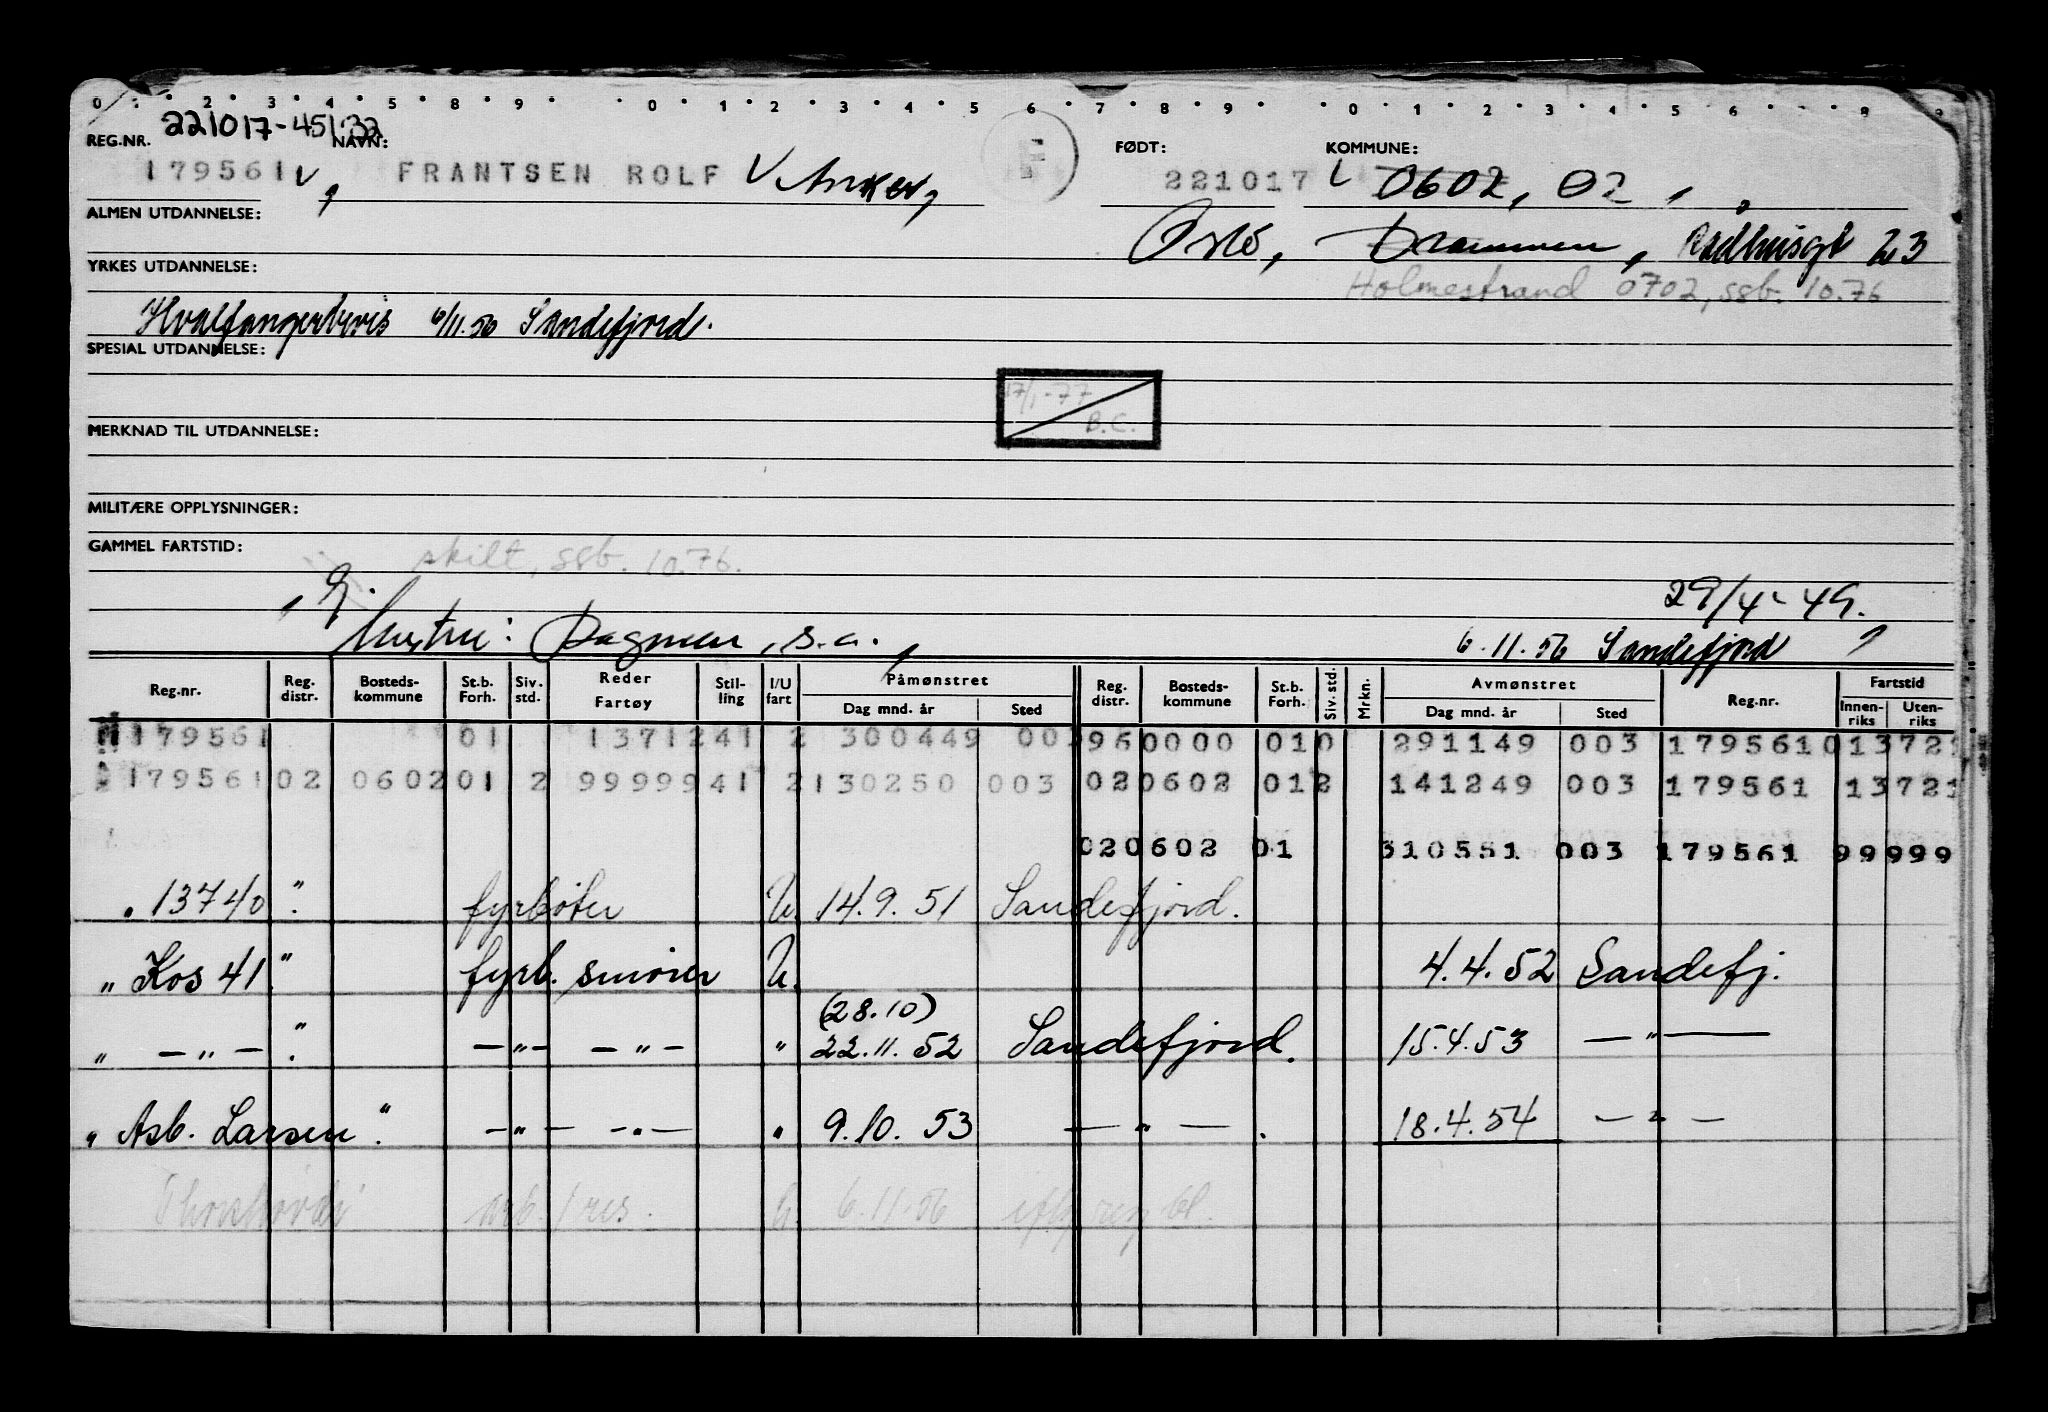 0 2 3 4 5 8 9 0 1 2 3 4 5 6 7 8 9 0 1 2 3 4 5 6 8 9
REG.NR. 221017-45132 NAVN: FØDT: KOMMUNE:
179561 v, FRANTSEN ROLF V Anker, 221017 0602, 02
ALMEN UTDANNELSE:
Oslo, Drammen, Rådhusgt 23
YRKES UTDANNELSE:
Holmestrand 0702, ssb. 10.76
Hvalfangerbevis 6/11.56 Sandefjord.
SPESIAL UTDANNELSE:
17/1-77
B.C.
MERKNAD TIL UTDANNELSE:
MILITÆRE OPPLYSNINGER:
GAMMEL FARTSTID:
skilt, ssb. 10.76.
29/4-49.
Hustru: Dagmar, s.a., 6.11.56 Sandefjord
Reg.nr. Reg. distr. Bosteds- kommune St.b. Forh. Siv. std. Reder Fartøy Stil- ling I/U fart Påmønstret Reg. distr. Bosteds- kommune St.b. Forh. Siv. std. Mrkn. Avmønstret Reg.nr. Fartstid
Dag mnd. år Sted Dag mnd. år Sted Innen- riks Uten- riks
179561 01 1371241 2 300449 003 960000 010 291149 003 1795610 13721
179561 02 0602 01 2 9999941 2 130250 003 020602 012 141249 003 179561 13721
020602 01 310551 003 179561 99999
" 13740 " fyrbøter U. 14.9.51 Sandefjord.
" Kos 41 " fyrb. smører U. 4.4.52 Sandefj.
(28.10)
" — " — " — " — — " — " 22.11.52 Sandefjord. 15.4.53 — " —
" Asb. Larsen " — " — — " — " 9.10.53 — " — . 18.4.54 — " —
Thorshøvdi arb. 1 res. U. 6.11.56 iflg reg bl.